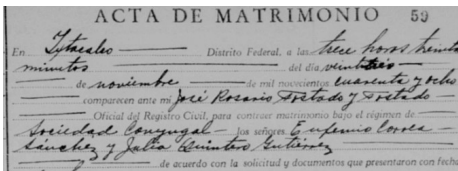 ACTA DE MATRIMONIO 59
En Ixtacalco Distrito Federal, a las trece horas treinta
minutos del día veintitrés
de noviembre de mil novecientos cuarenta y ocho
comparecen ante mi José Rosario Tostado y Tostado
Oficial del Registro Civil, para contraer matrimonio bajo el régimen de
Sociedad Conyugal los señores Eufemio Correa
Sánchez y Julia Quintero Gutiérrez
de acuerdo con la solicitud y documentos que presentaron con fecha